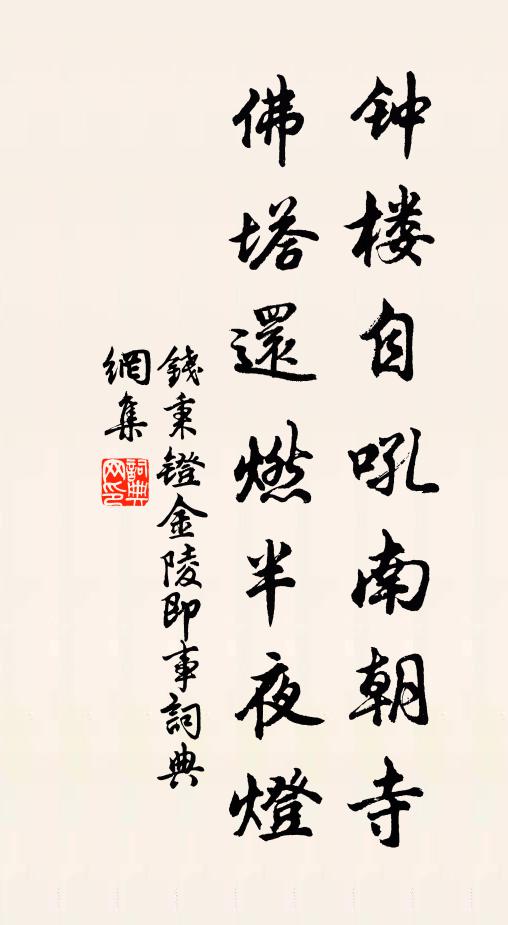 钟楼自吼南朝寺
佛塔還燃半夜燈
錢秉鐙金陵即事詞典
網集
詞典
网印